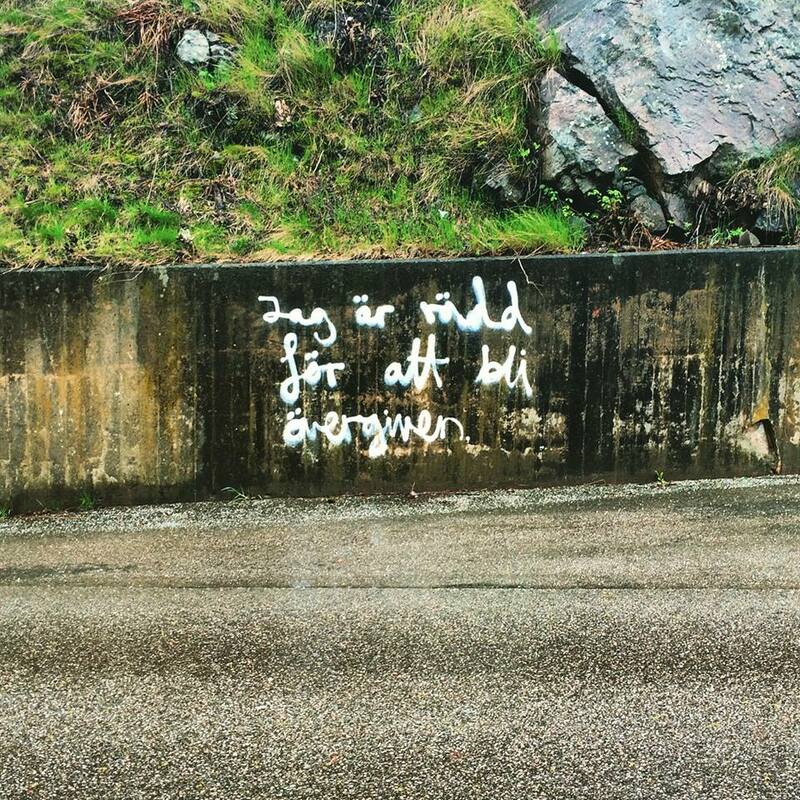 Jag är rädd
för att bli
övergiven.